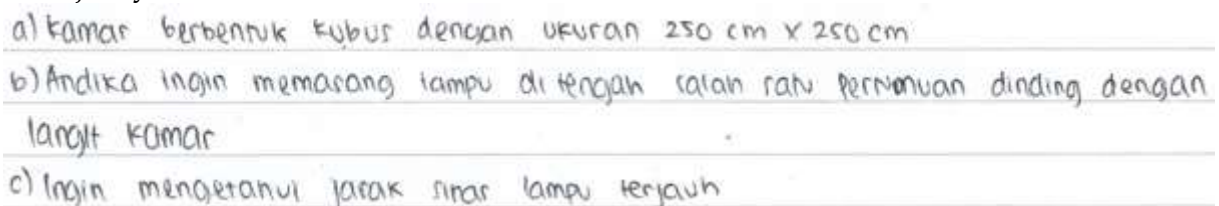 a) Kamar berbentuk kubus dengan ukuran 250 cm x 250 cm
b) Andika ingin memasang lampu di tengah salah satu pertemuan dinding dengan
langit kamar
c) Ingin mengetahui jarak sinar lampu terjauh